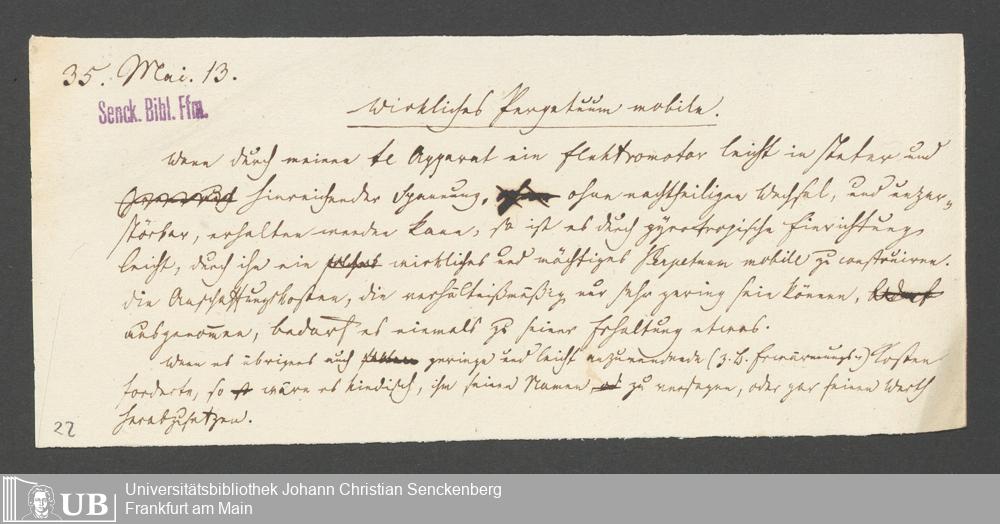 35. Mai. 13.
Senck. Bibl. Ffm.
Wirkliches Perpetuum mobile.
Wenn durch meinen te Apparat ein Elektromotor leicht in steter und
hinreichender Spannung, ohne nachtheiligen Wechsel, und unzer-
störbar, erhalten werden kann, so ist es durch gyrotropische Einrichtung
leicht, durch ihn ein solches wirkliches und mächtiges Perpetuum mobile zu construiren.
Die Anschaffungskosten, die verhältnißmäßig nur sehr gering sein können, bedarf
ausgenommen, bedarf es niemals zu seiner Erhaltung etwas.
Wenn es übrigens auch geringe und leicht anzuwendende (z. B. Erwärmungs-) Kosten
forderte, so wäre es kindisch, ihm seinen Namen zu versagen, oder gar seinen Werth
herabzusetzen.
22
UB
Universitätsbibliothek Johann Christian Senckenberg
Frankfurt am Main